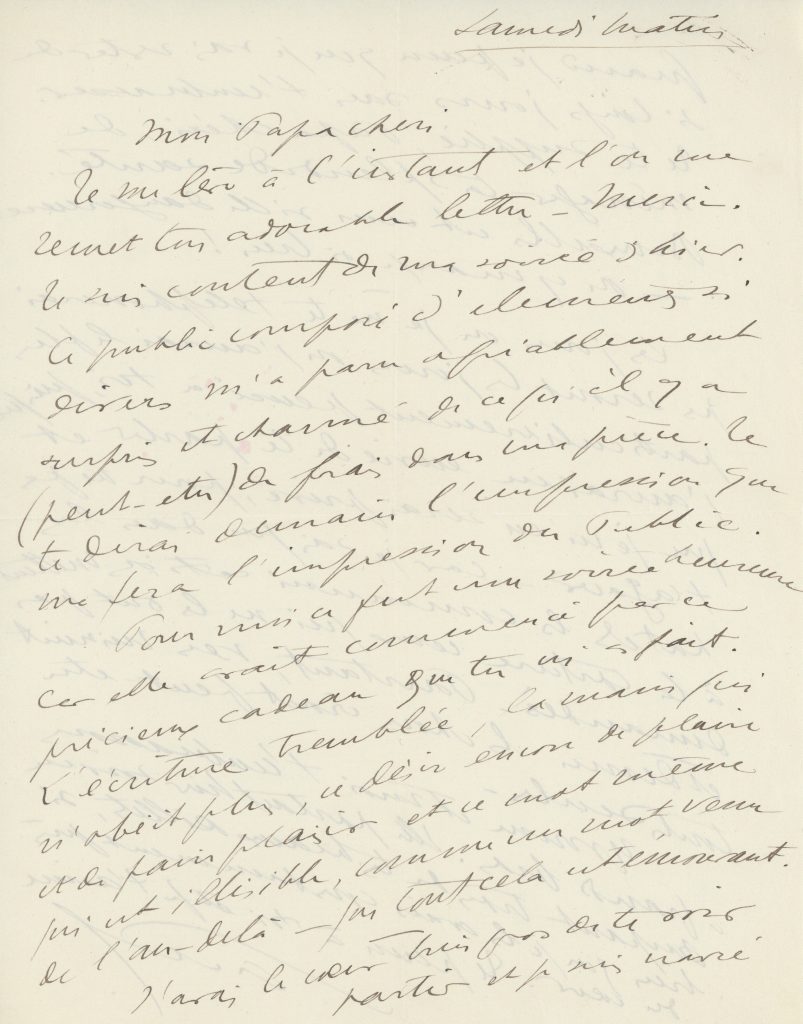 Samedi matin
Mon Papa cheri
Je me lève à l'instant et l'on me
remet ton adorable lettre - Merci.
Je suis content de ma soirée d'hier.
Ce public composé d'elements si
divers m'a paru agréablement
surpris et charmé de ce qu'il y a
(peut-etre) de frais dans ma pièce. Je
te dirai demain l'impression que
me fera l'impression du Public.
Pour moi ce fut une soirée heureuse
car elle avait commencé par ce
précieux cadeau que tu m'as fait.
L'écriture tremblée, la main qui
n'obéit plus, ce désir encore de plaire
et de faire plaisir et ce mot même
qui est illisible, comme un mot venu
de l'au-delà - que tout cela est émouvant.
J'avais le cœur bien gros de te voir
partir et je suis navré